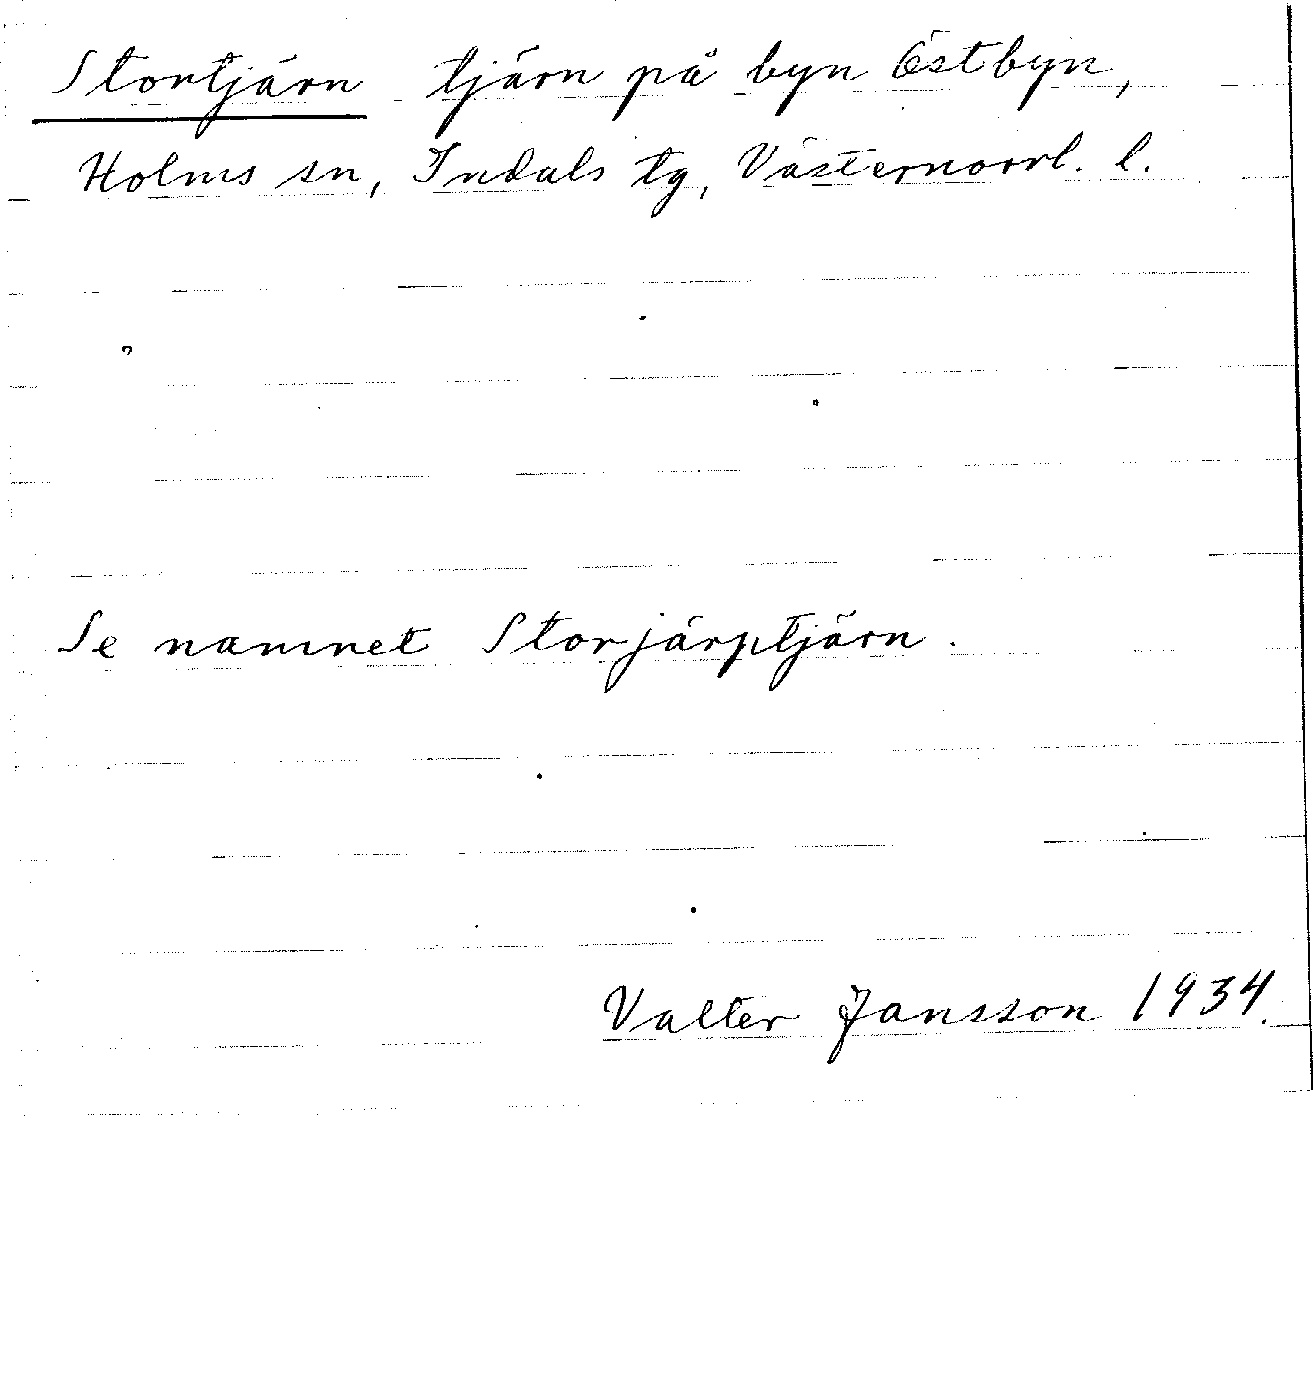 Stortjärn tjärn på byn Östbyn,
Holms sn, Indals tg, Västernorrl. l.
Se namnet Storjärptjärn.
Valter Jansson 1934.